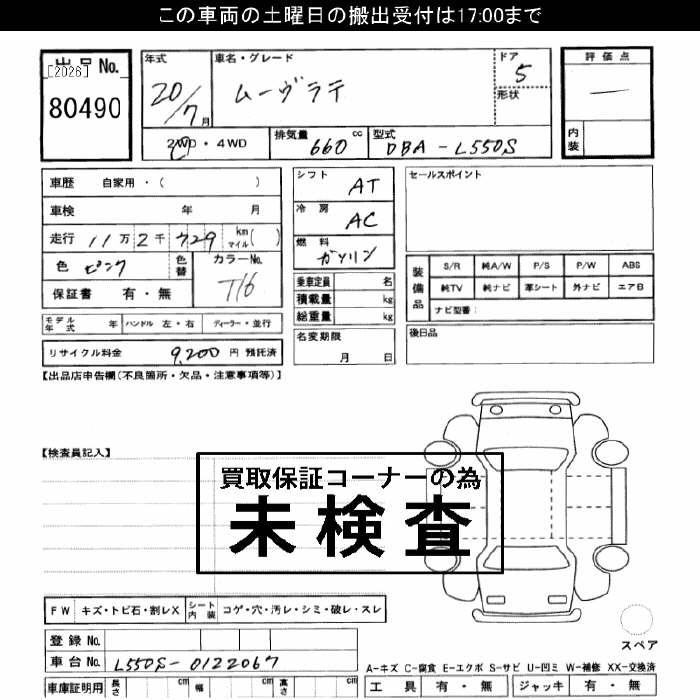 この車両の土曜日の搬出受付は17:00まで
出品No.
[2026]
80490
年式
20/7月
車名・グレード
ムーヴラテ
ドア
5
形状
評価点
内装
2WD・4WD
排気量
660 cc
型式
DBA-L550S
車歴 自家用・( )
車検 年 月
走行 11万2千729 km マイル( )
色 ピンク
色替
カラーNo.
T16
保証書 有・無
モデル年式 年
ハンドル 左・右
ディーラー・並行
リサイクル料金 9,200 円 預託済
シフト AT
冷房 AC
燃料 ガソリン
乗車定員 名
積載量 kg
総重量 kg
名変期限
月 日
セールスポイント
装備品
S/R 純A/W P/S P/W ABS
純TV 純ナビ 革シート 外ナビ エアB
ナビ型番:
後日品
【出品店申告欄(不良箇所・欠品・注意事項等)】
【検査員記入】
買取保証コーナーの為
未検査
FW キズ・トビ石・割レX
シート内装 コゲ・穴・汚レ・シミ・破レ・スレ
登録No.
車台No. L550S-0122067
車庫証明用 長さ cm 幅 cm 高さ cm
スペア
A-キズ C-腐食 E-エクボ S-サビ U-凹ミ W-補修 XX-交換済
工具 有・無 ジャッキ 有・無